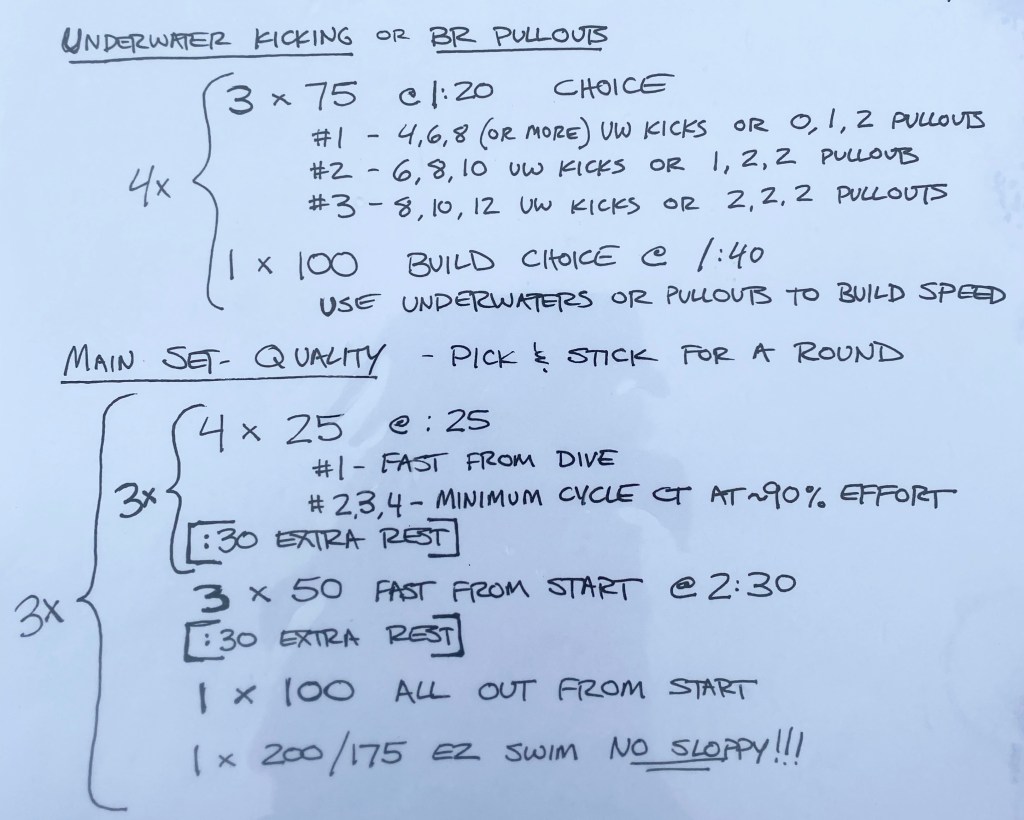 UNDERWATER KICKING OR BR PULLOUTS
3 x 75 @ 1:20 CHOICE
#1 - 4,6,8 (OR MORE) UW KICKS OR 0,1,2 PULLOUTS
#2 - 6,8,10 UW KICKS OR 1,2,2 PULLOUTS
4x
#3 - 8,10,12 UW KICKS OR 2,2,2 PULLOUTS
1 x 100 BUILD CHOICE @ 1:40
USE UNDERWATERS OR PULLOUTS TO BUILD SPEED
MAIN SET- QUALITY - PICK & STICK FOR A ROUND
4 x 25 @ :25
#1 - FAST FROM DIVE
3x
#2,3,4 - MINIMUM CYCLE CT AT ~90% EFFORT
[:30 EXTRA REST]
3 x 50 FAST FROM START @ 2:30
3x
[:30 EXTRA REST]
1 x 100 ALL OUT FROM START
1 x 200/175 EZ SWIM NO SLOPPY!!!